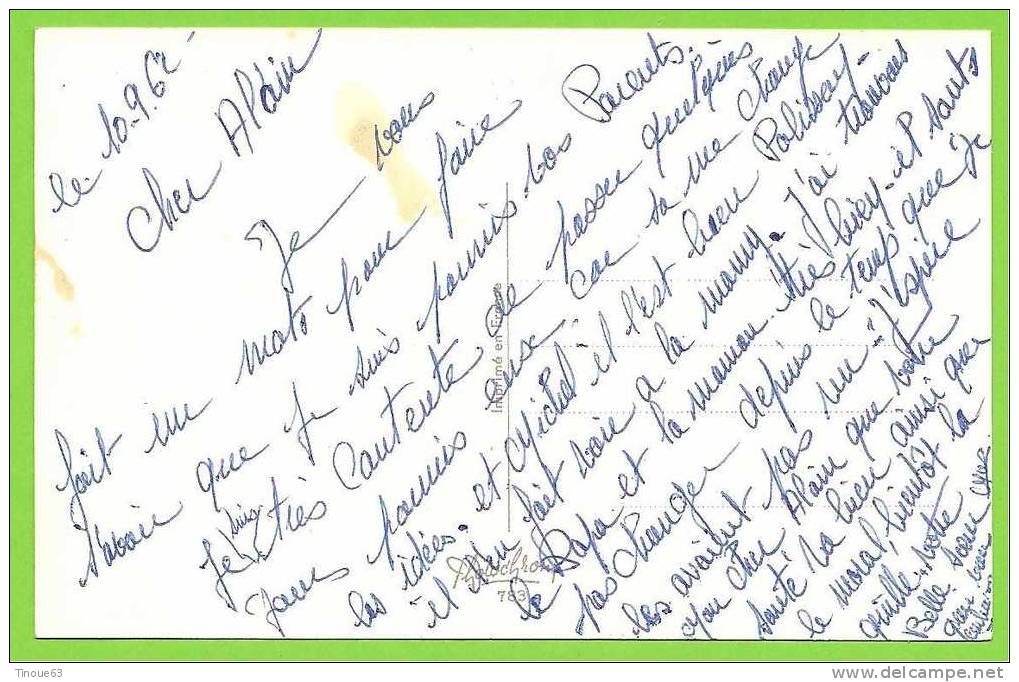 le 10-9.62
Cher Alain
Je vous
fait un mots pour faire
savoir que je suis parmis vos Parents.
Je suis très contente de passer quelques
jours parmis eux car sa me change
les idées. et Michel et l'est bien Polisson
et s'en fait voir a la mamy. J'ai trouvais
le Papa et la maman très bien. et sants
pas change depuis le temp que je
les avaient pas vu. J'espère
mon cher Alain que votre
santé va bien ainsi que
le moral, bientôt la
quille. votre
Belle soeur
qui vous
Imprimé en France
Photochrom
783
Tinoue63
www.delcampe.net